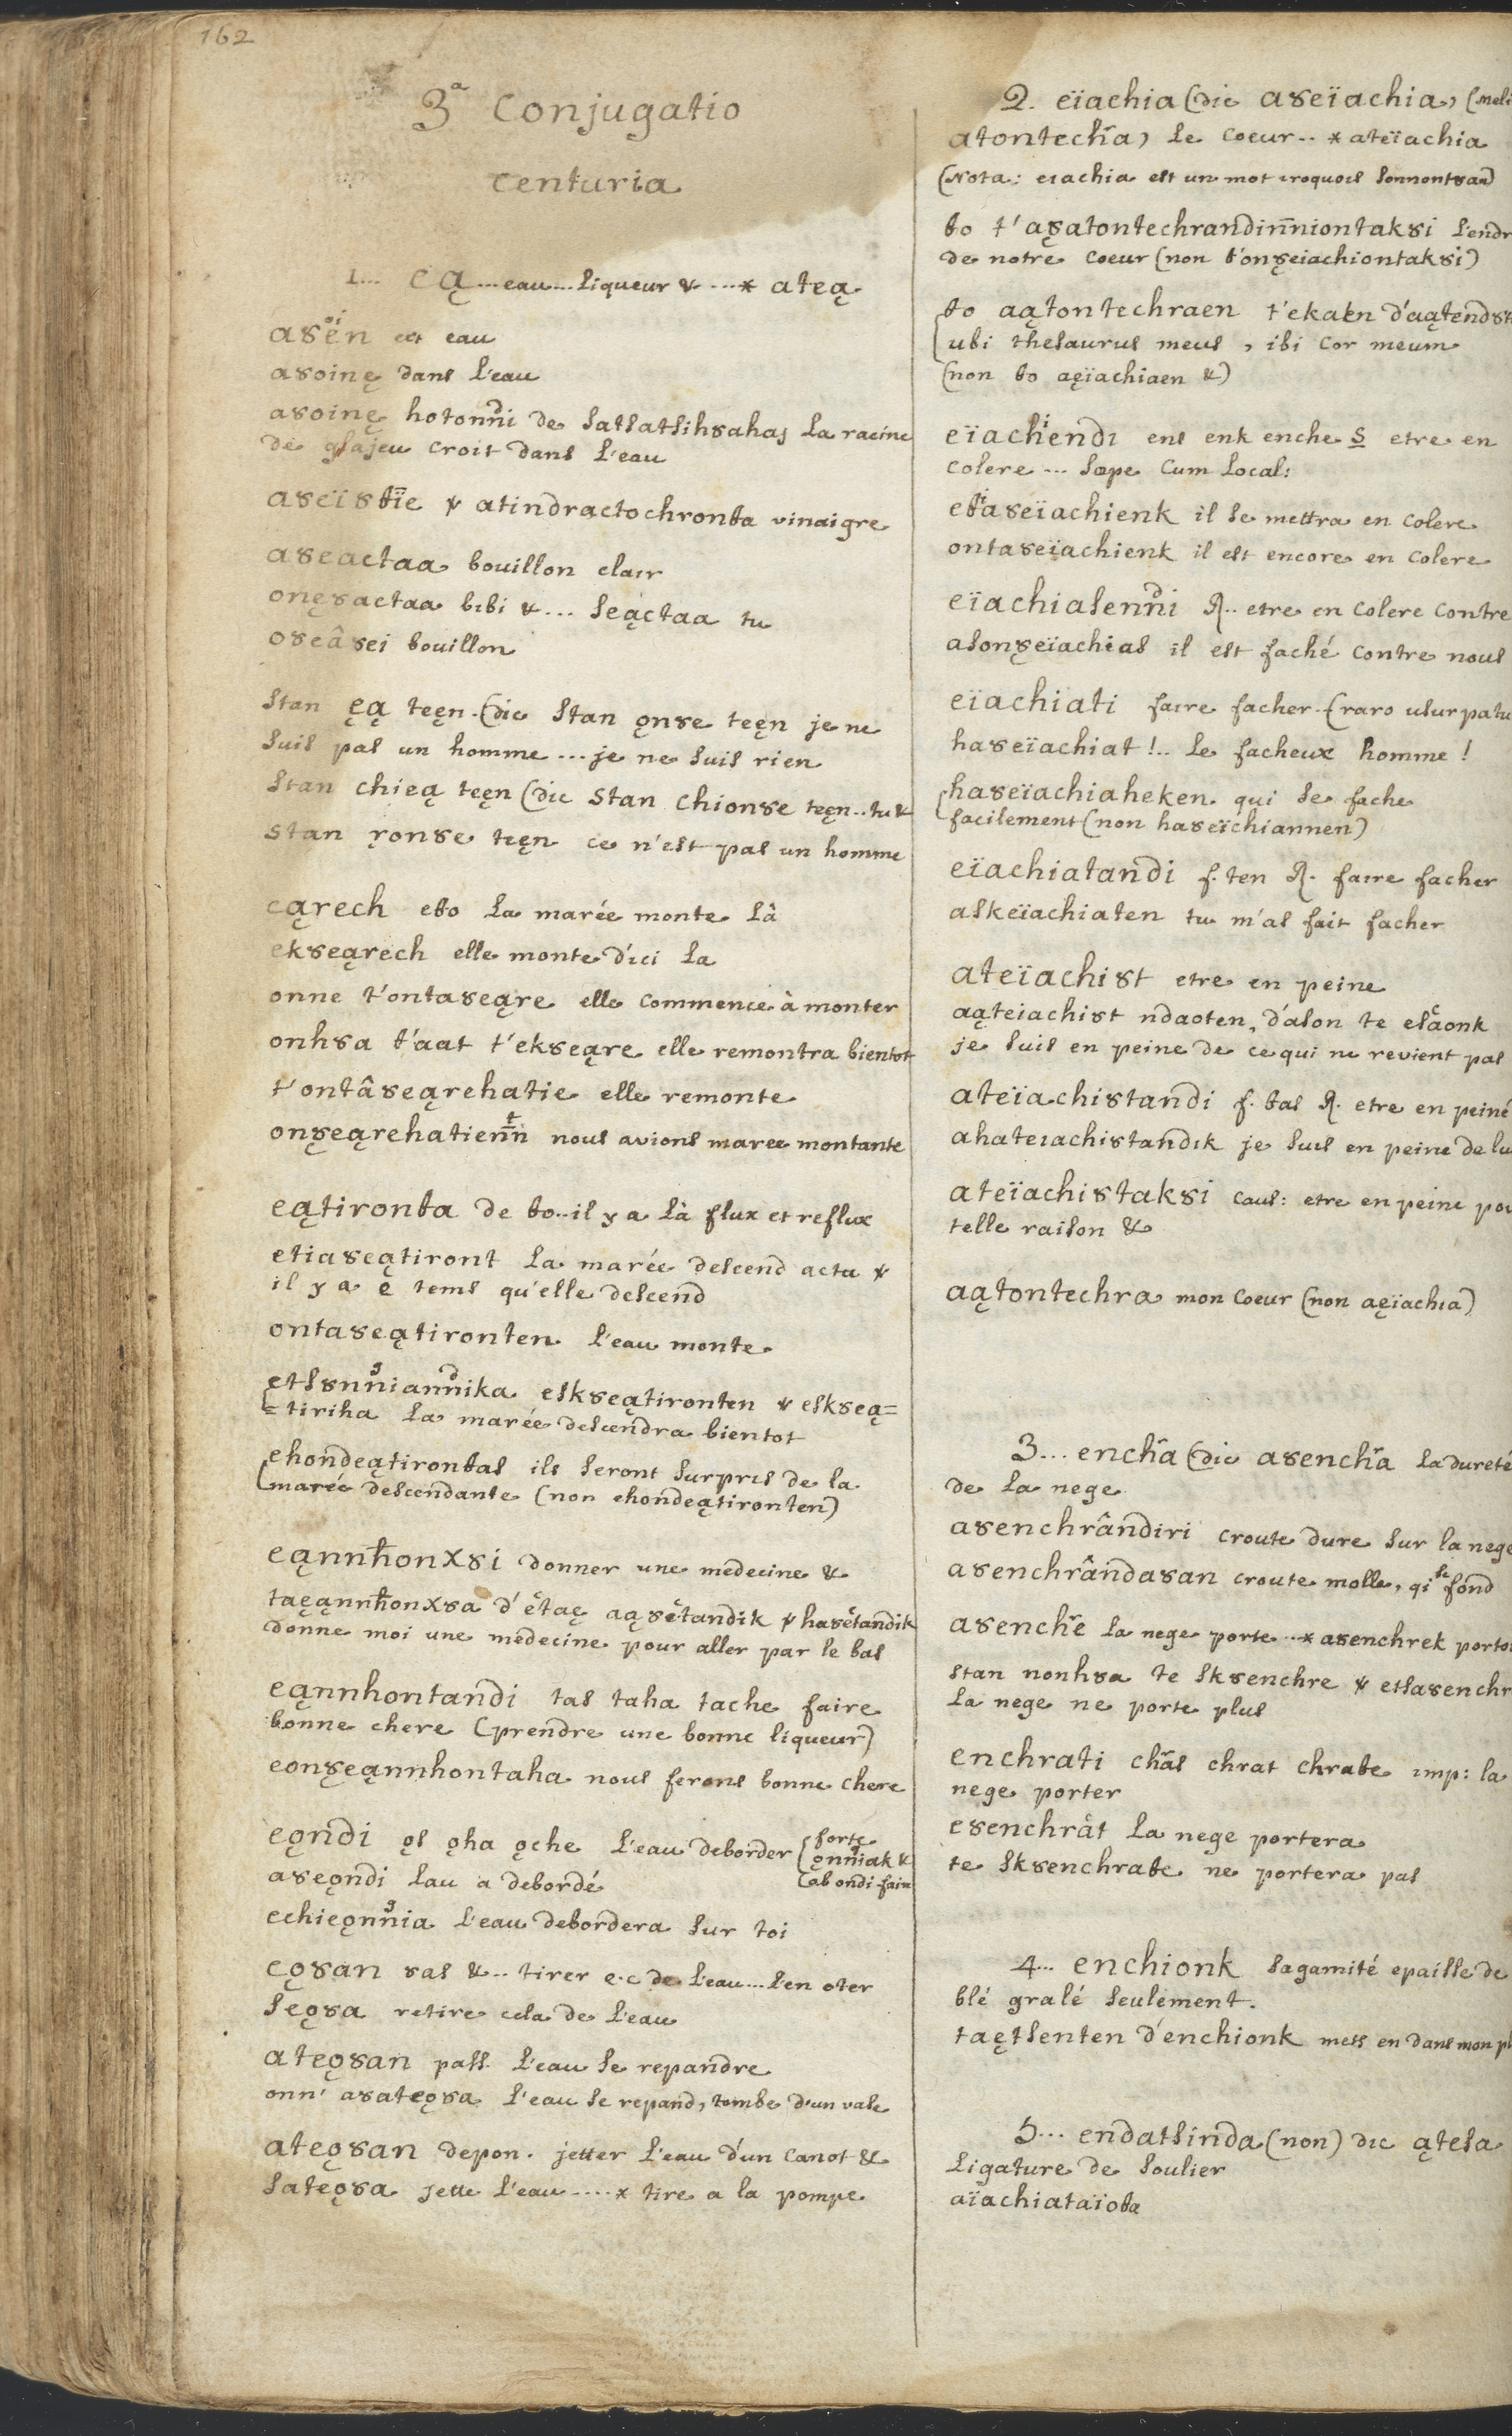 162
3ª Conjugatio
Centuria
1... eą ... eau ... liqueur & .... * ateą
aȣen est eau
aȣoinę dans l'eau
aȣoinę hotonndi de satsatsihȣahaj la racine
de glajeu croit dans l'eau
aȣeïsθïe v atindractochronθa vinaigre
aȣeactaa bouillon clair
onęȣactaa bibi &... seąctaa tu
oȣeâȣei bouillon
stan ęą teęn (dic stan onȣe teęn je ne
suis pas un homme ... je ne suis rien
stan chieą teęn (dic stan chionȣe teęn .. tu &
stan ronȣe teęn ce n'est pas un homme
eąrech eθo la marée monte là
ekȣeąrech elle monte d'ici la
onne t'ontaȣeąre elle commence à monter
onhȣa θ'aat t'ekȣeąre elle remontra bientot
t'ontâȣeąrehatie elle remonte
onȣeąrehatienn nous avions maree montante
eątironθa de θo .. il y a là flux et reflux
etiaȣeątiront la marée descend actu v
il y a e tems qu'elle descend
ontaȣeątironten l'eau monte
etsȣnniannika eskȣeątironten v eskȣeą=
=tiriha la marée descendra bientot
ehondeątironθas ils seront surpris de la
marée descendante (non ehondeątironten)
eąnnhonxȣi donner une medecine &
taęąnnhonxȣa d'ëtaę aąȣëtandik v haȣëtandik
donne moi une medecine pour aller par le bas
eąnnhontandi tas taha tache faire
bonne chere (prendre une bonne liqueur)
eonȣeąnnhontaha nous ferons bonne chere
eondi os oha oche l'eau deborder (forte
onniak &
(ab ondi fair
aȣeondi l'au a debordé
echieonnia l'eau debordera sur toi
eoȣan ȣas & .. tirer e.c de l'eau ... l'en oter
seoȣa retire cela de l'eau
ateoȣan pass. l'eau se repandre
onn' aȣateoȣa l'eau se repand, tombe d'un vase
ateoȣan depon. jetter l'eau d'un canot &
sateoȣa jette l'eau .... * tire a la pompe
2. eïachia (dic aȣeïachia, (meli
atontecȟa) le coeur .. * ateïachia
(Nota: eiachia est un mot iroquois sonnontȣan)
θo t'aȣatontechrandinniontakȣi l'endr
de notre coeur (non θ'onȣeiachiontakȣi)
θo aątontechraen t'ekaen d'aątendȣt
ubi thesaurus meus, ibi cor meum
(non θo aęïachiaen &)
eïachiendi ens enk enche S etre en
colere ... sæpe cum local:
eθaȣeïachienk il se mettra en colere
ontaȣeïachienk il est encore en colere
eïachiasenndi R .. etre en colere contre
asonȣeïachias il est faché contre nous
eïachiati faire facher (raro usurpatu
haȣeïachiat! .. le facheux homme!
haȣeïachiaheken qui se fache
facilement (non haȣeïchiannen)
eïachiatandi f. ten R. faire facher
askeïachiaten tu m'as fait facher
ateïachiȣt etre en peine
aąteiachiȣt ndaoten, d'ason te esäonk
je suis en peine de ce qui ne revient pas
ateïachiȣtandi f. θas R. etre en peine
ahateiachiȣtandik je suis en peine de lu
ateïachiȣtakȣi caus: etre en peine pou
telle raison &
aątontechra mon coeur (non aęïachia)
3... encȟa (dic aȣencȟa la dureté
de la nege
aȣenchrândiri croute dure sur la nege
aȣenchrândaȣan croute molle, qi se fond
aȣencȟe la nege porte .. * aȣenchrek portoi
stan nonhȣa te skȣenchre v etsaȣenchr
la nege ne porte plus
enchrati cȟas chrat chraθe imp: la
nege porter
eȣenchrât la nege portera
te skȣenchraθe ne portera pas
4... enchionk sagamité epaisse de
blé gralé seulement.
taętsenten d'enchionk mets en dans mon pl
5... endatsinda (non) dic ątesa
ligature de soulier
aïachiataïoθa